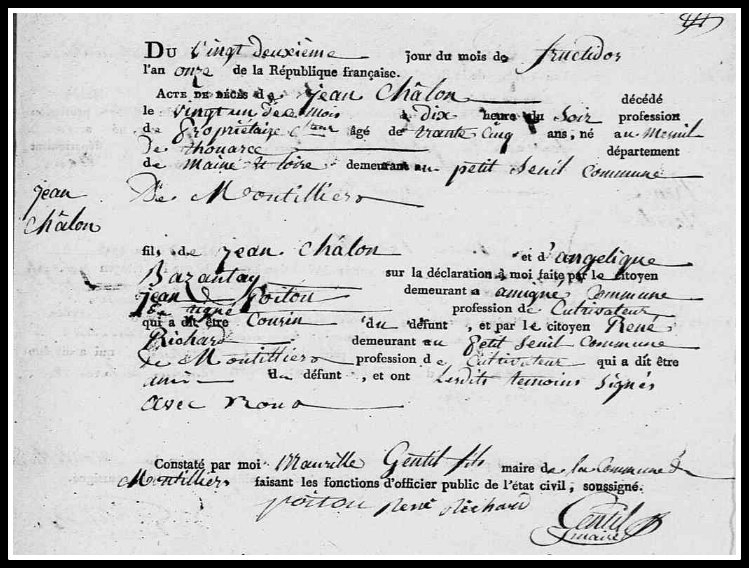 DU vingt deuxième jour du mois de fructidor
l'an onze de la République française.
ACTE DE DÉCÈS de jean Châlon décédé
le vingt un de ce mois à dix heure du Soir profession
de Propriétaire âgé de trante Cinq ans, né au Mesnil
De thouarcé département
de Maine et Loire demeurant au petit Seuil Commune
De Montilliers
jean
Châlon
fils de jean Châlon et d'angelique
Bazantay sur la déclaration à moi faite par le citoyen
jean Poitou demeurant a Commune
profession de Cultivateur
qui a dit être Cousin du défunt, et par le citoyen René
Richard demeurant au Petit Seuil Commune
de Montilliers profession de Cultivateur qui a dit être
ami du défunt, et ont Lesdits temoins Signés
avec nous
Constaté par moi Maurille Gentil fils maire de la Commune de
Montilliers faisant les fonctions d'officier public de l'état civil, soussigné.
poitou René Richard
Gentil
maire